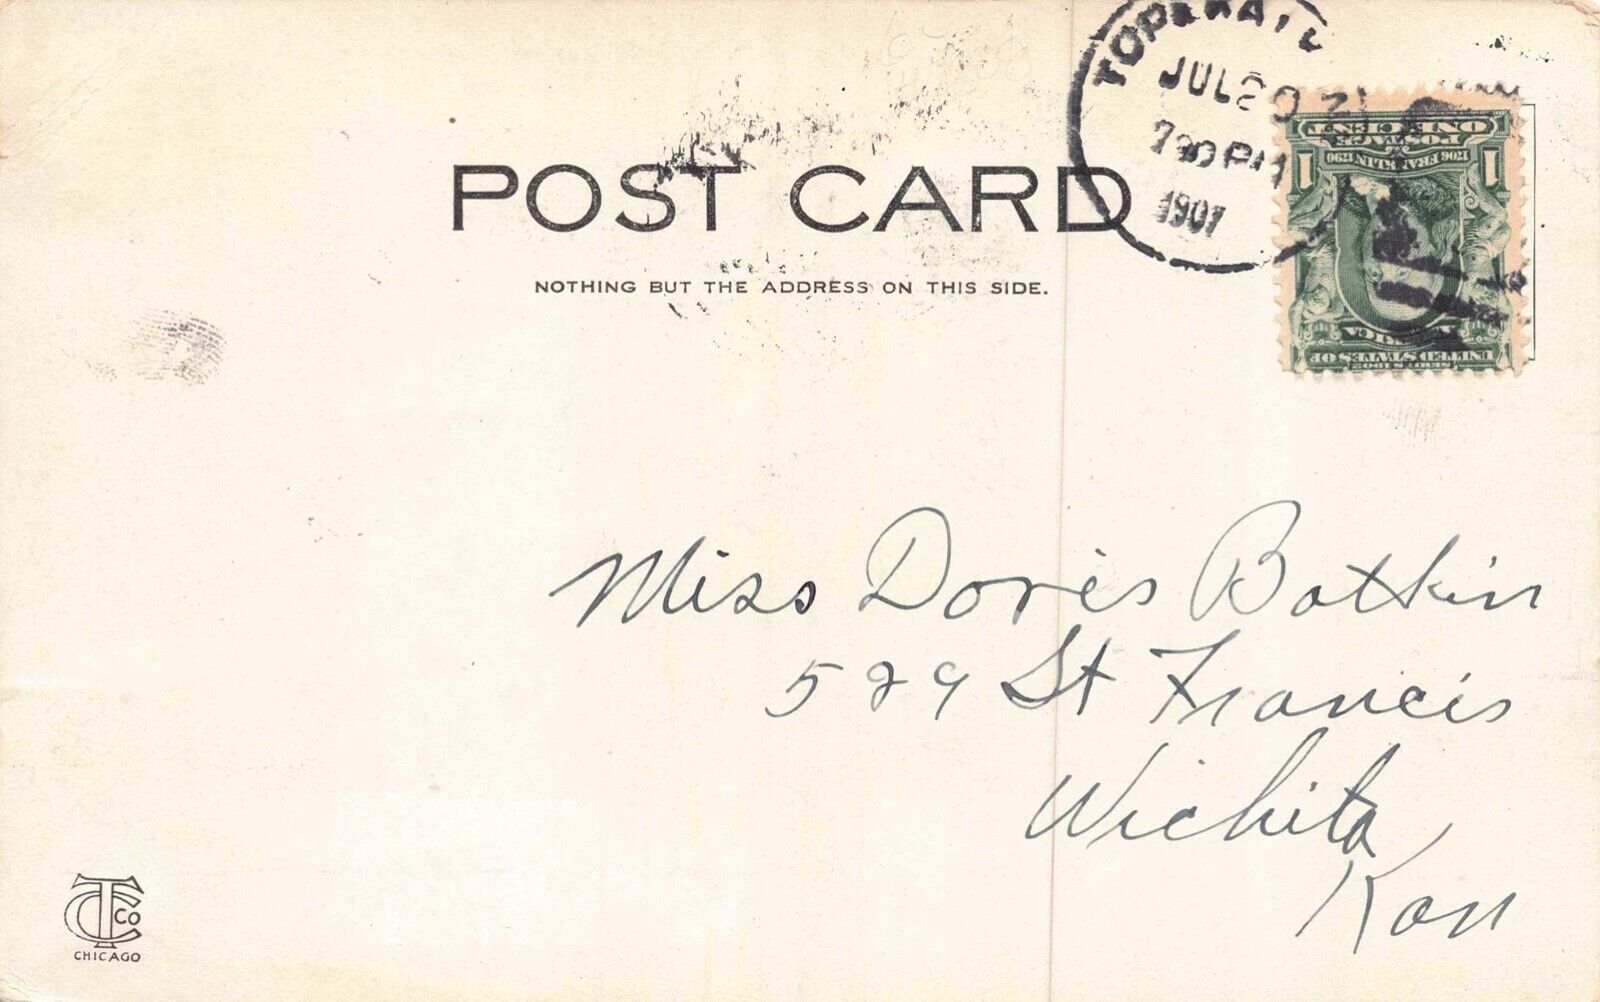 TOPEKA
JUL 20
730 PM
1907
ONE CENT
POSTAGE
1706 FRANKLIN 1790
1 1
SERIES 1902
UNITED STATES OF
AMERICA
POST CARD
NOTHING BUT THE ADDRESS ON THIS SIDE.
Miss Doris Botkin
529 St Francis
Wichita
Kan
CT CO
CHICAGO